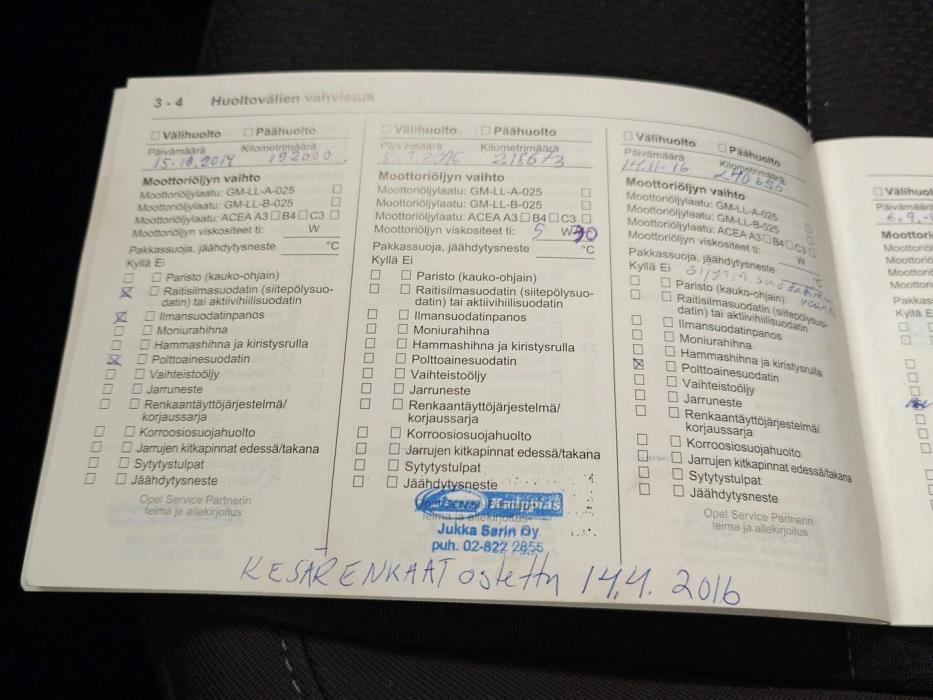 3 - 4 Huoltovälien vahvistus
Välihuolto Päähuolto
Päivämäärä Kilometrimäärä
15.10.2014 192000
Moottoriöljyn vaihto
Moottoriöljylaatu: GM-LL-A-025
Moottoriöljylaatu: GM-LL-B-025
Moottoriöljylaatu: ACEA A3 B4 C3
Moottoriöljyn viskositeet ti: W
Pakkassuoja, jäähdytysneste °C
Kyllä Ei
Paristo (kauko-ohjain)
Raitisilmasuodatin (siitepölysuo-
datin) tai aktiivihiilisuodatin
Ilmansuodatinpanos
Moniurahihna
Hammashihna ja kiristysrulla
Polttoainesuodatin
Vaihteistoöljy
Jarruneste
Renkaantäyttöjärjestelmä/
korjaussarja
Korroosiosuojahuolto
Jarrujen kitkapinnat edessä/takana
Sytytystulpat
Jäähdytysneste
Opel Service Partnerin
leima ja allekirjoitus
Välihuolto Päähuolto
Päivämäärä Kilometrimäärä
2016 218673
Moottoriöljyn vaihto
Moottoriöljylaatu: GM-LL-A-025
Moottoriöljylaatu: GM-LL-B-025
Moottoriöljylaatu: ACEA A3 B4 C3
Moottoriöljyn viskositeet ti: 5 W 30
Pakkassuoja, jäähdytysneste °C
Kyllä Ei
Paristo (kauko-ohjain)
Raitisilmasuodatin (siitepölysuo-
datin) tai aktiivihiilisuodatin
Ilmansuodatinpanos
Moniurahihna
Hammashihna ja kiristysrulla
Polttoainesuodatin
Vaihteistoöljy
Jarruneste
Renkaantäyttöjärjestelmä/
korjaussarja
Korroosiosuojahuolto
Jarrujen kitkapinnat edessä/takana
Sytytystulpat
Jäähdytysneste
leima ja allekirjoitus
Jukka Sarin Oy
puh. 02-822 2855
Välihuolto Päähuolto
Päivämäärä Kilometrimäärä
14.11-16 240650
Moottoriöljyn vaihto
Moottoriöljylaatu: GM-LL-A-025
Moottoriöljylaatu: GM-LL-B-025
Moottoriöljylaatu: ACEA A3 B4 C3
Moottoriöljyn viskositeet ti: W
Pakkassuoja, jäähdytysneste °C
Kyllä Ei
Paristo (kauko-ohjain)
Raitisilmasuodatin (siitepölysuo-
datin) tai aktiivihiilisuodatin
Ilmansuodatinpanos
Moniurahihna
Hammashihna ja kiristysrulla
Polttoainesuodatin
Vaihteistoöljy
Jarruneste
Renkaantäyttöjärjestelmä/
korjaussarja
Korroosiosuojahuolto
Jarrujen kitkapinnat edessä/takana
Sytytystulpat
Jäähdytysneste
Opel Service Partnerin
leima ja allekirjoitus
KESÄRENKAAT ostettu 14.4. 2016